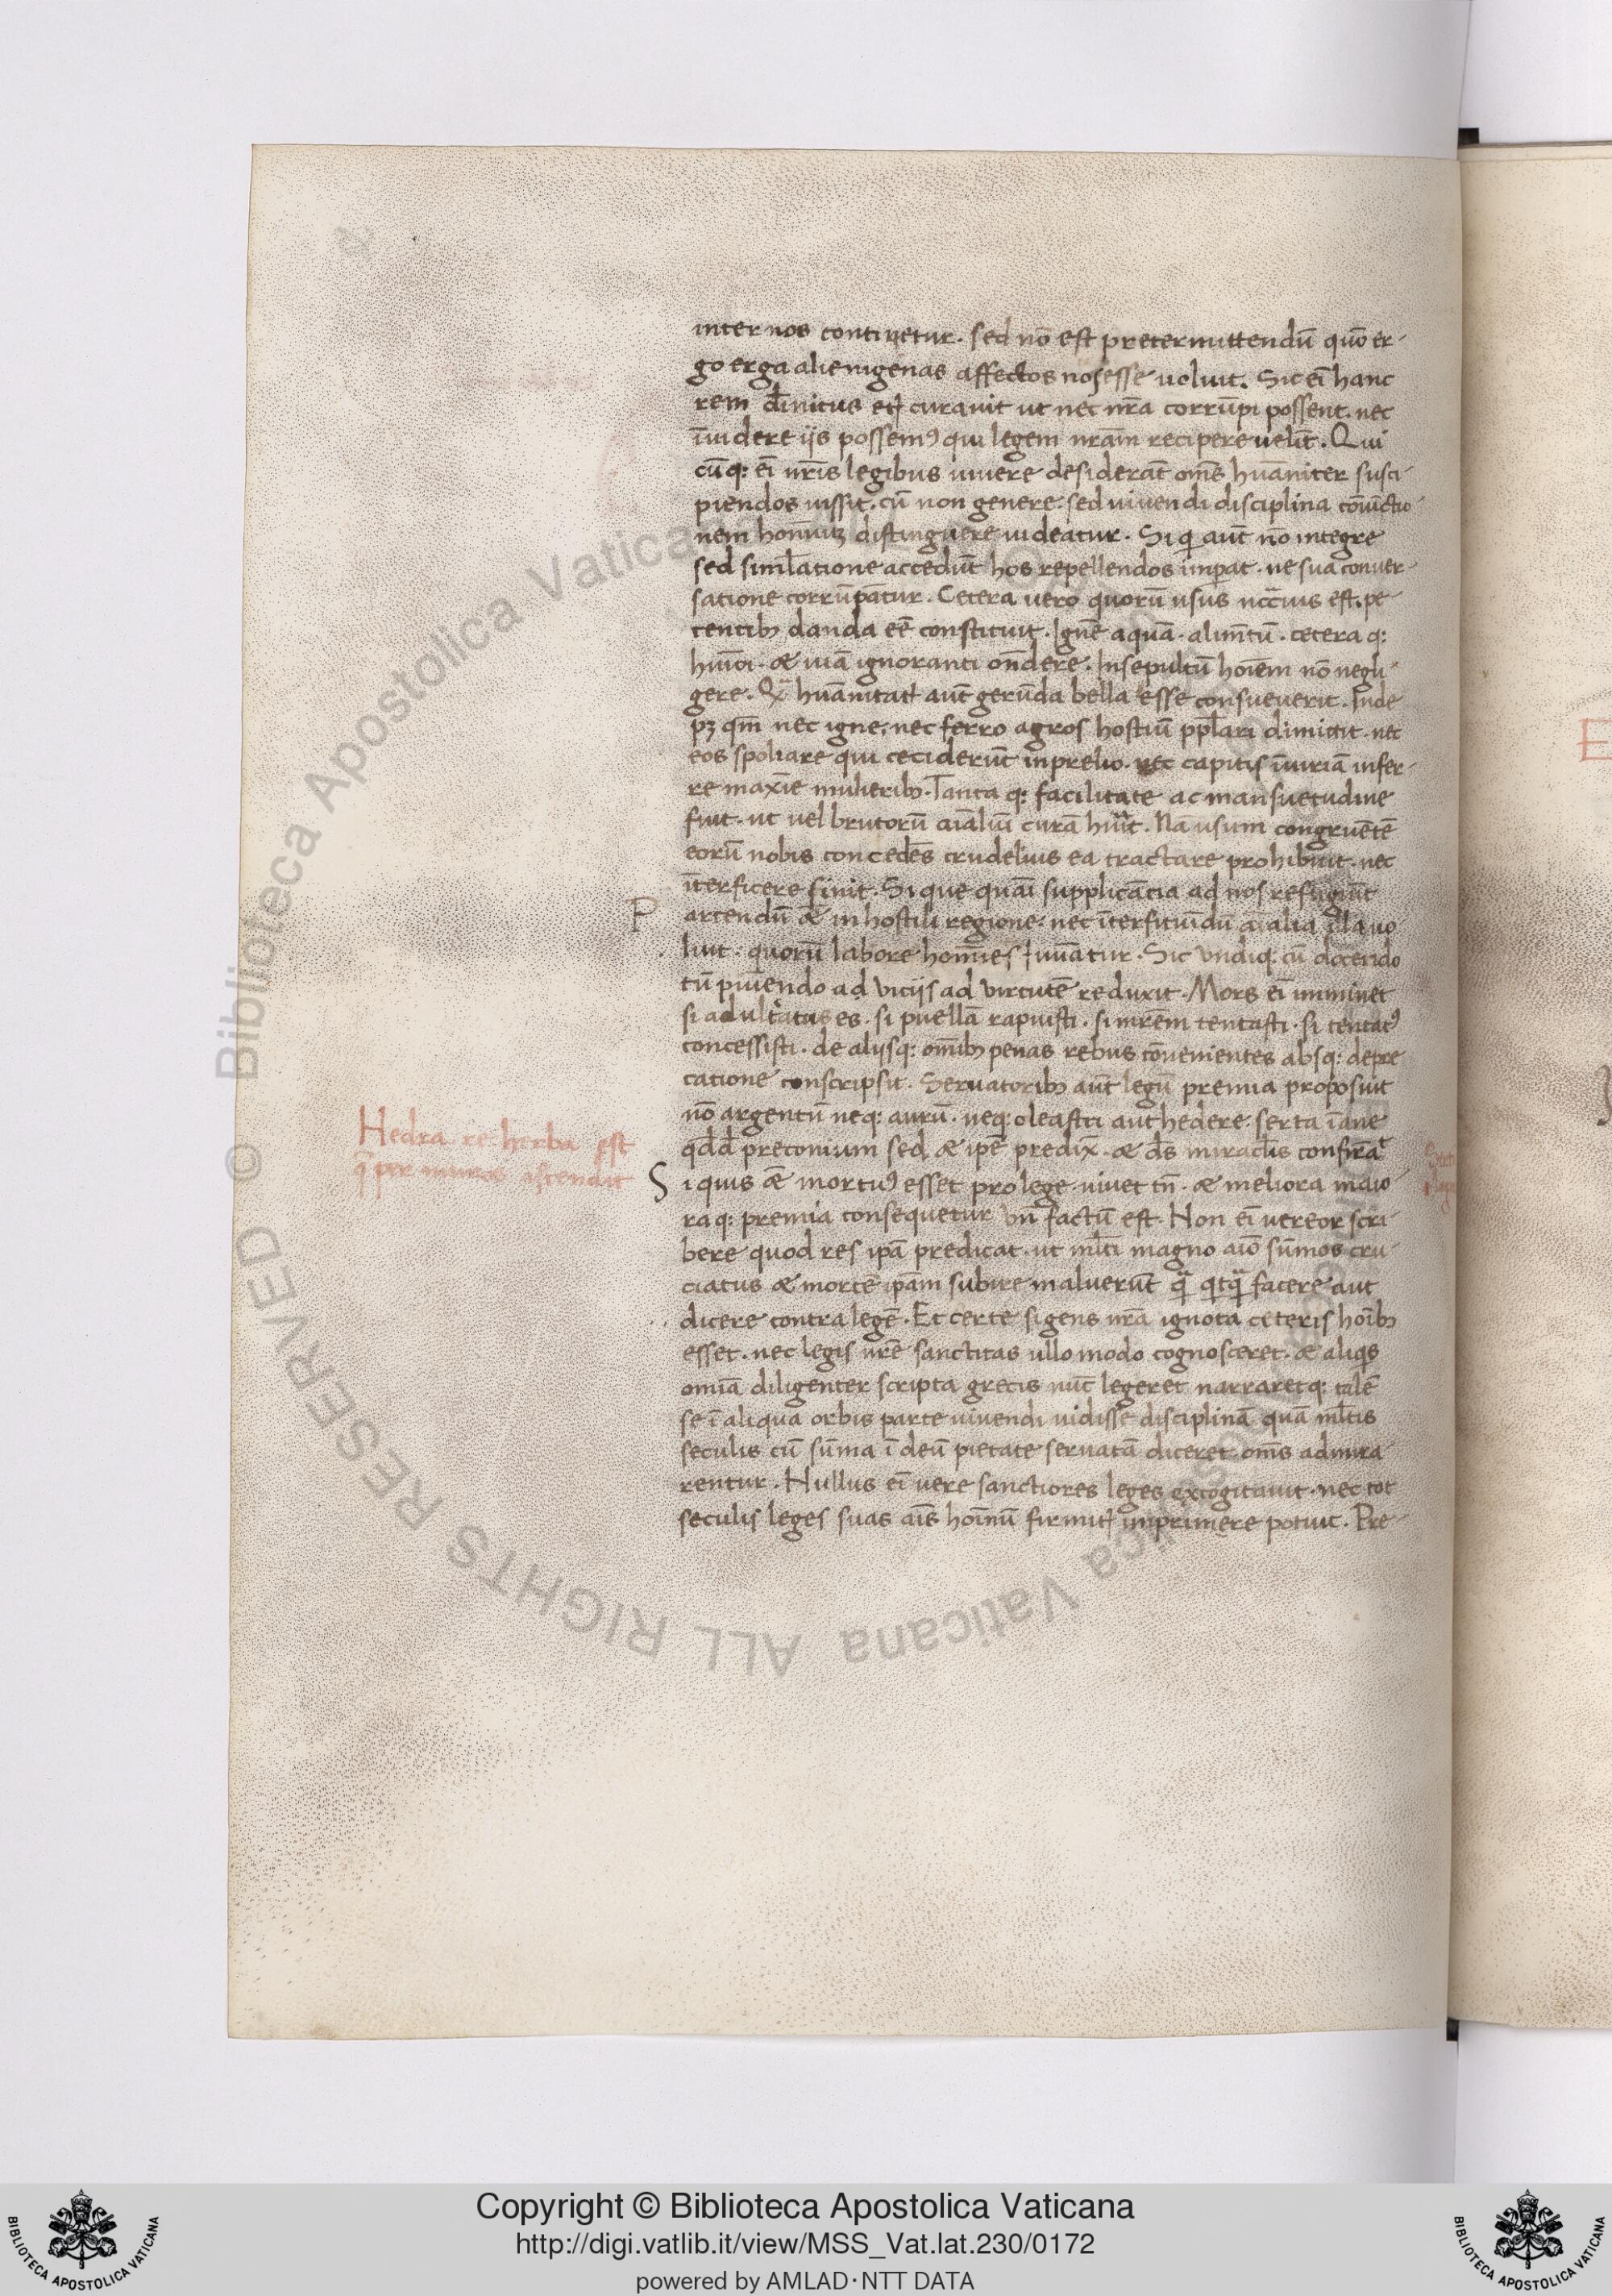 inter nos continetur. sed nō est pretermittendū quō er-
go erga alienigenas affectos nos esse uoluit. Sic eī hanc
rem diuinitus curauit ut nec nr̄a corrūpi possent. nec
īuidere ijs possemꝯ qui legem nrām recipere uelīt. Qui
cūq: eī nrīs legibus uiuere desiderāt om̄s huāniter susci-
piendos iussit. cū non genere. sed uiuendi disciplina cōiūctio-
nem hominū distinguere uideatur. Si qi aut̄ nō integre
sed siml̄atione accedūt hos repellendos imperat. ne sua conuer-
satione corrūpātur. Cetera uero quorū usus nccr̄ius est. pe-
tentibꝫ danda eē constituit. Ignē aquā. alimt̄ū. cetera q:
hm̄oi. & uiā ignoranti ondēre. Insepultū hoīem nō negli-
gere. huānitat aut̄ gerūda bella esse consueuerit. Inde
pꝫ qm̄ nec igne, nec ferro agros hostiū pplāri dimittit. nec
eos spoliare qui ceciderūt in prelio. nec capitis īiuriā infer-
re maxīe mulieribꝫ. Tanta q: facilitate ac mansuetudine
fuit. ut uel brutorū aīaliū curā. Nā usum congruētē
eorū nobis concedēs crudelius ea tractare prohibuit. nec
īterficere sinit. Si que quasī supplicātia ad nos refugiūt
P artendū in hostili regione. nec īterficiūdū aīalia illa uo
luit. quorū labore homīes iuuātur. Sic undiq: cū docendo
tū puniendo ad vicijs ad virtutē reduxit. Mors eī imminet
si adulteratus es. si puellā rapuisti. si mrēm tentasti. si tentatꝯ
concessisti. de alijsq: om̄ibꝫ penas rebus cōuenientes absq: depre
catione conscripsit. Seruatoribꝫ aut̄ legū premia proposuit
nō argentū neq: aurū. neq: oleastri aut hedere. serta īane
qddā preconium sed & ipē predix̄. & ds̄ miraclis confirāt
Si quis mortuꝯ esset pro lege. uiuet tn̄. & meliora maio
ra q: premia consequetur vn̄ factū est. Non eī uereor scri-
bere quod res ipā predicat. ut ml̄ti magno aīo sūmos cru-
ciatus & mortē ipām subire maluerūt facere aut
dicere contra legē. Et certe si gens nr̄a ignota ceteris hoībꝫ
esset. nec legis nrē sanctitas ullo modo cognosceret. & aliqis
omīa diligenter scripta grecis nūc legeret narraretq: talē
se ī aliqua orbis parte uiuendi uidisse disciplinā quā ml̄tis
seculis cū sūma ī deū pietate seruatā diceret. om̄s admira-
rentur. Nullus eī uere sanctiores leges excogitauit. nec tot
seculis leges suas aīs hoīnū firmit īmprimere potuit. Pre-
Hedra re herba est
q̄ per muros ascendit
Copyright © Biblioteca Apostolica Vaticana
http://digi.vatlib.it/view/MSS_Vat.lat.230/0172
powered by AMLAD·NTT DATA
BIBLIOTECA APOSTOLICA VATICANA
BIBLIOTECA APOSTOLICA VATICANA
© Biblioteca Apostolica Vaticana
ALL RIGHTS RESERVED